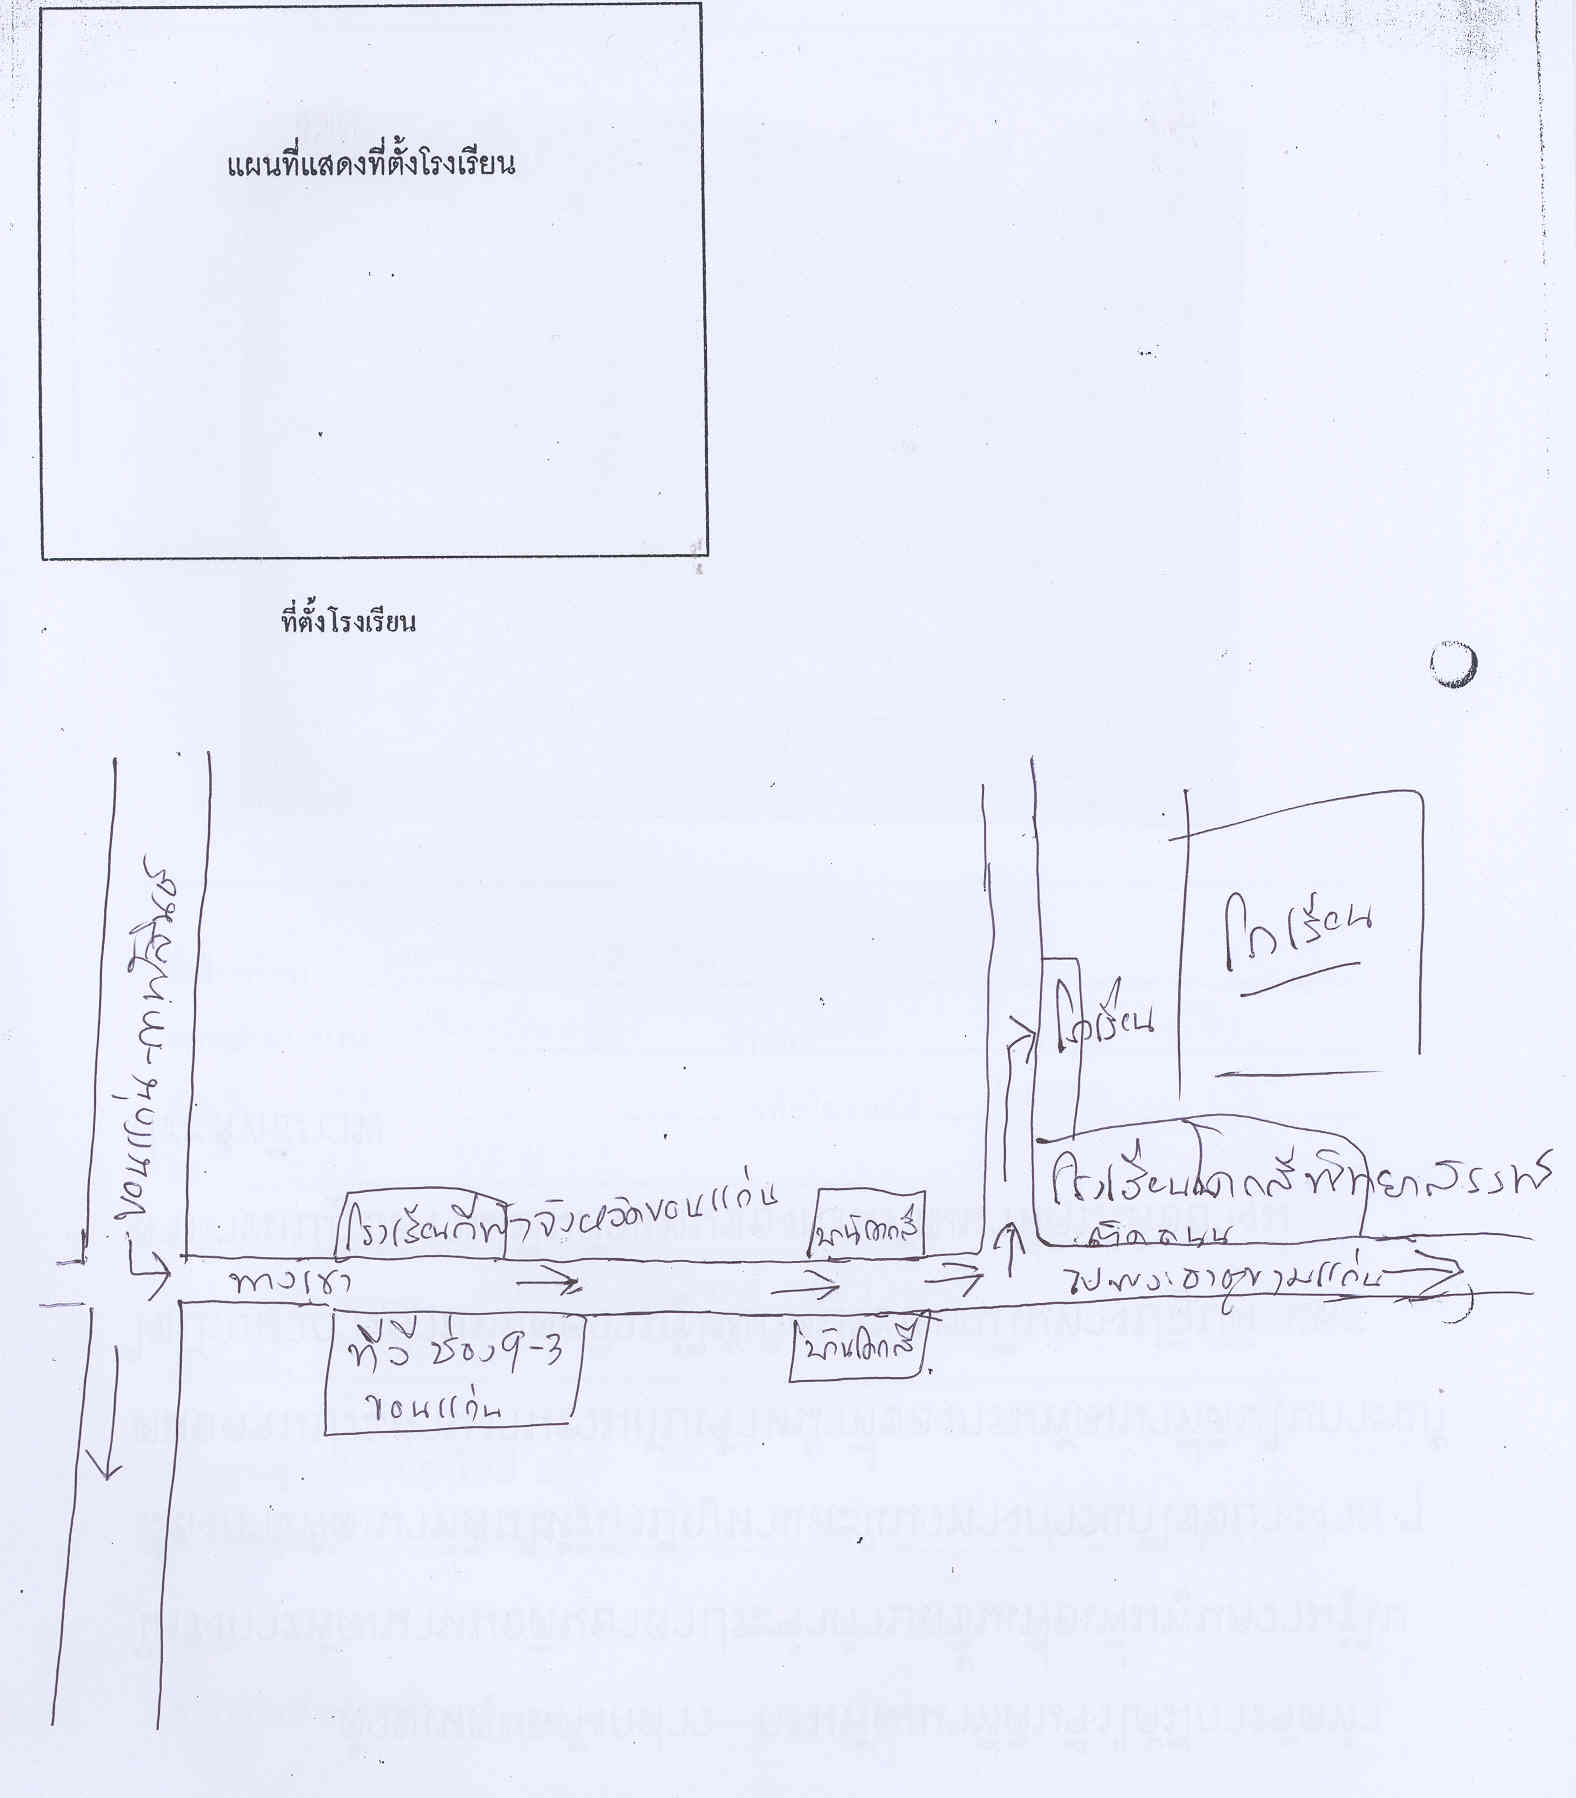 แผนที่แสดงที่ตั้งโรงเรียน
ที่ตั้งโรงเรียน
ถนน
ขอนแก่น
โรงเรียน
โรงเรียน
โรงเรียนโคกสีพิทยาสรรพ์
ติดถนน
โรงเรียนกีฬาจังหวัดขอนแก่น
บ้านโคกสี
ทางเข้า
ไปพระธาตุขามแก่น
ทีวี ช่อง 9-3
ขอนแก่น
บ้านโคกสี